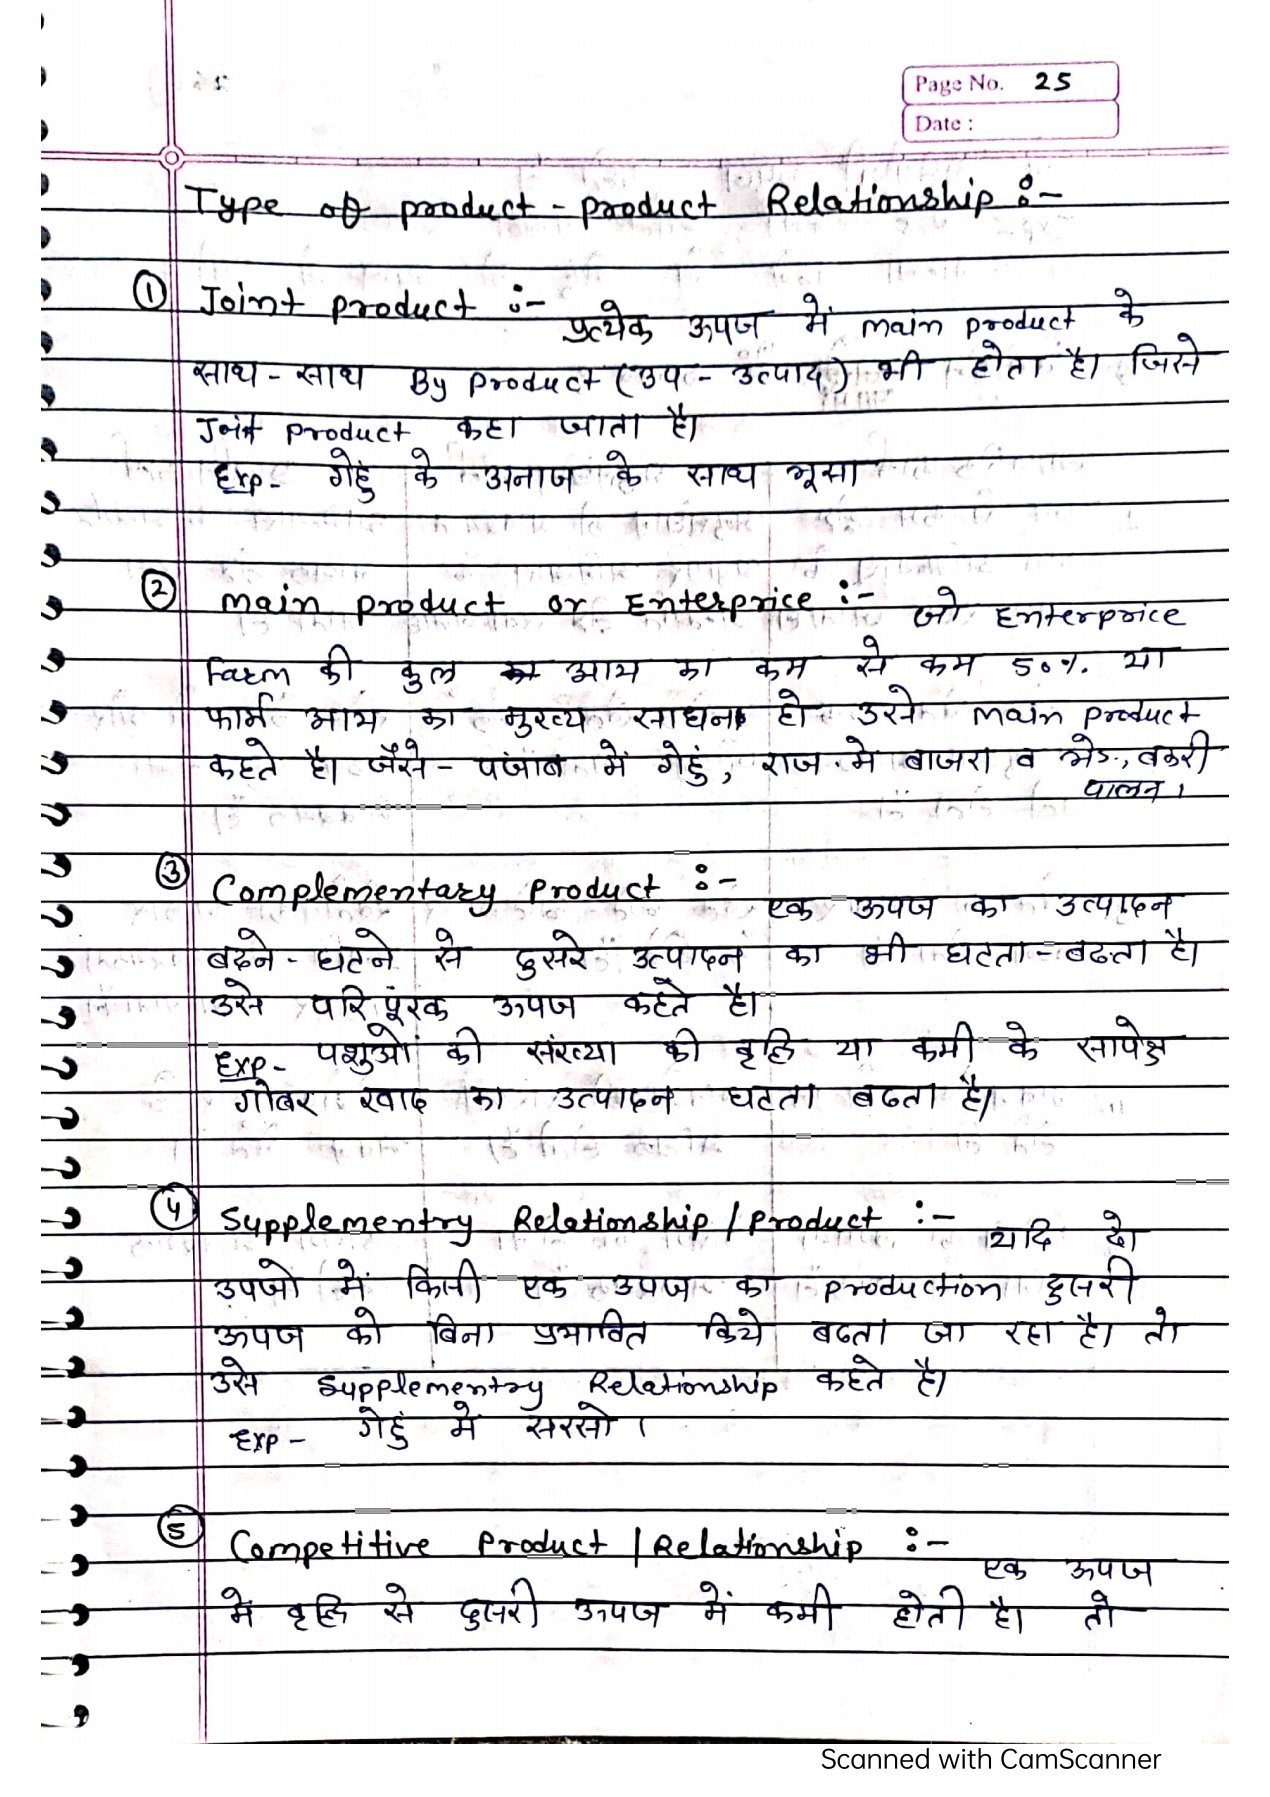 Page No. 25
Date :
Type of product - product Relationship :-
① Joint product :- प्रत्येक ऊपज में main product के
साथ - साथ By product (उप - उत्पाद) भी होता है। जिसे
Joint product कहा जाता है।
Exp- गेहुं के अनाज के साथ भूसा
② main product or Enterprice :- जो Enterprice
Farm की कुल आय का कम से कम 50% या
फार्म आय का मुख्य साधन हो उसे main product
कहते है। जैसे - पंजाब में गेहुं, राज. मे बाजरा व भेड, बकरी
पालन।
③ Complementary Product :- एक ऊपज का उत्पादन
बढने - घटने से दुसरे उत्पादन का भी घटता - बढता है।
उसे परिपूरक ऊपज कहते है।
Exp- पशुओं की संख्या की वृद्धि या कमी के सापेक्ष
गोबर खाद का उत्पादन घटता बढता है।
④ Supplementry Relationship / product :- यदि दो
उपजो में किसी एक उपज का production दुसरी
ऊपज को बिना प्रभावित किये बढता जा रहा है। तो
उसे Supplementry Relationship कहते है।
Exp - गेहुं मे सरसो।
⑤ Competitive Product / Relationship :- एक ऊपज
मे वृद्धि से दुसरी ऊपज में कमी होती है। तो
Scanned with CamScanner